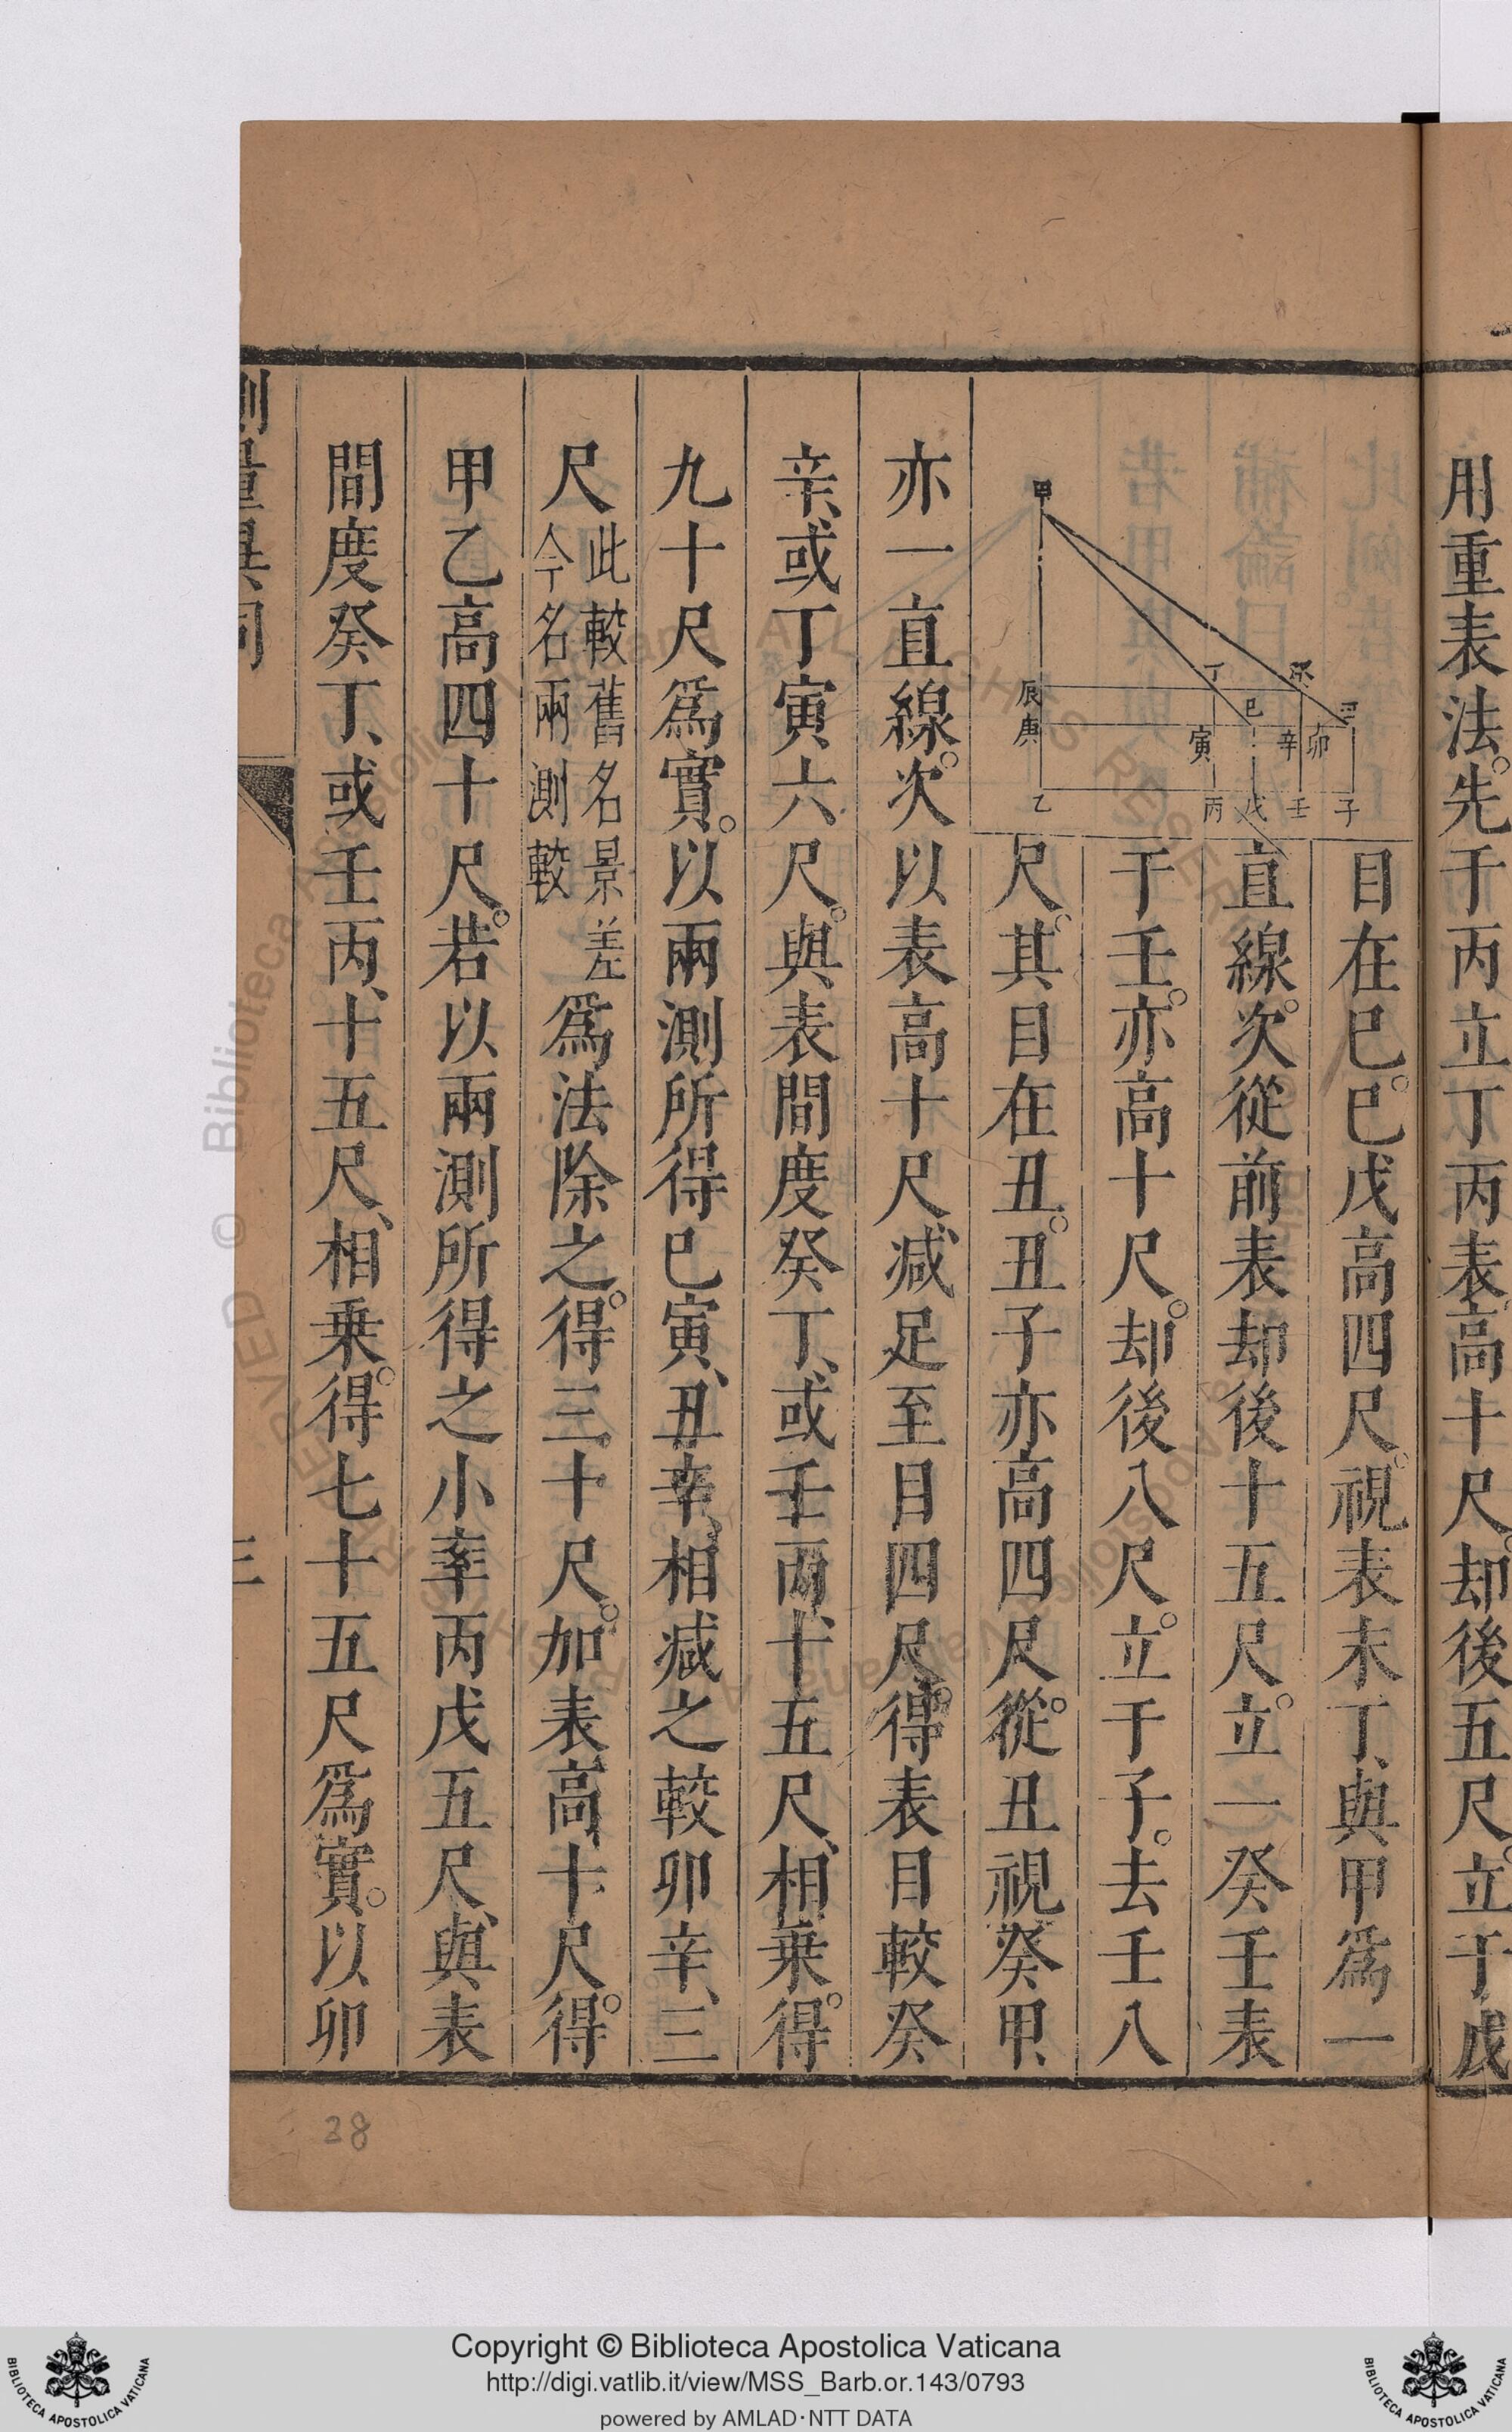 用重表法。先于丙立丁丙表高十尺。却後五尺。立于戊
甲
辰
庚
乙
丁
癸
巳
丑
寅
辛
卯
丙
戊
壬
子
目在巳。巳戊高四尺。視表末丁、與甲爲一
直線。次從前表却後十五尺。立一癸壬表
于壬。亦高十尺。却後八尺。立于子。去壬八
尺。其目在丑。丑子亦高四尺。從丑視癸甲、
亦一直線。次以表高十尺、減足至目四尺。得表目較癸
辛、或丁寅、六尺。與表間度癸丁、或壬丙、十五尺、相乗。得
九十尺爲實。以兩測所得巳寅、丑辛、相减之較卯辛、三
尺此較舊名景差
今名兩測較爲法除之。得三十尺。加表高十尺。得
甲乙高四十尺。若以兩測所得之小率丙戊五尺、與表
間度癸丁、或壬丙、十五尺、相乗。得七十五尺爲實。以卯
測量異同
三
38
Copyright © Biblioteca Apostolica Vaticana
http://digi.vatlib.it/view/MSS_Barb.or.143/0793
powered by AMLAD·NTT DATA
BIBLIOTECA APOSTOLICA VATICANA
BIBLIOTECA APOSTOLICA VATICANA